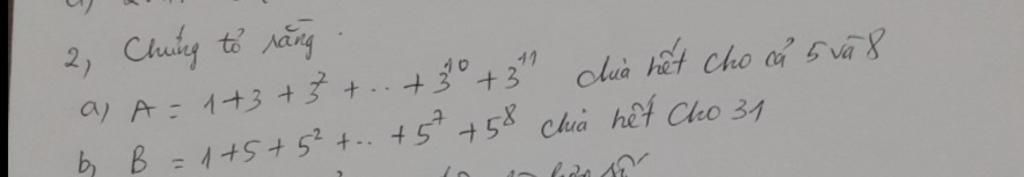 2, Chứng tỏ rằng.
a) A = 1+3+3² + .. + 3¹⁰ + 3¹¹ chia hết cho cả 5 và 8
b, B = 1+5+5² + .. + 5⁷ + 5⁸ chia hết cho 31